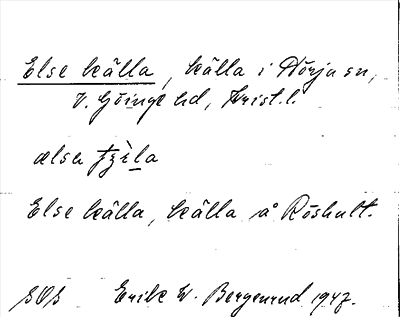 Else källa, källa i Hörja sn,
V. Göinge hd, Krist. l.
ælsa
Else källa, källa å Röshult.
SOS Erik W. Bergenrud 1947.